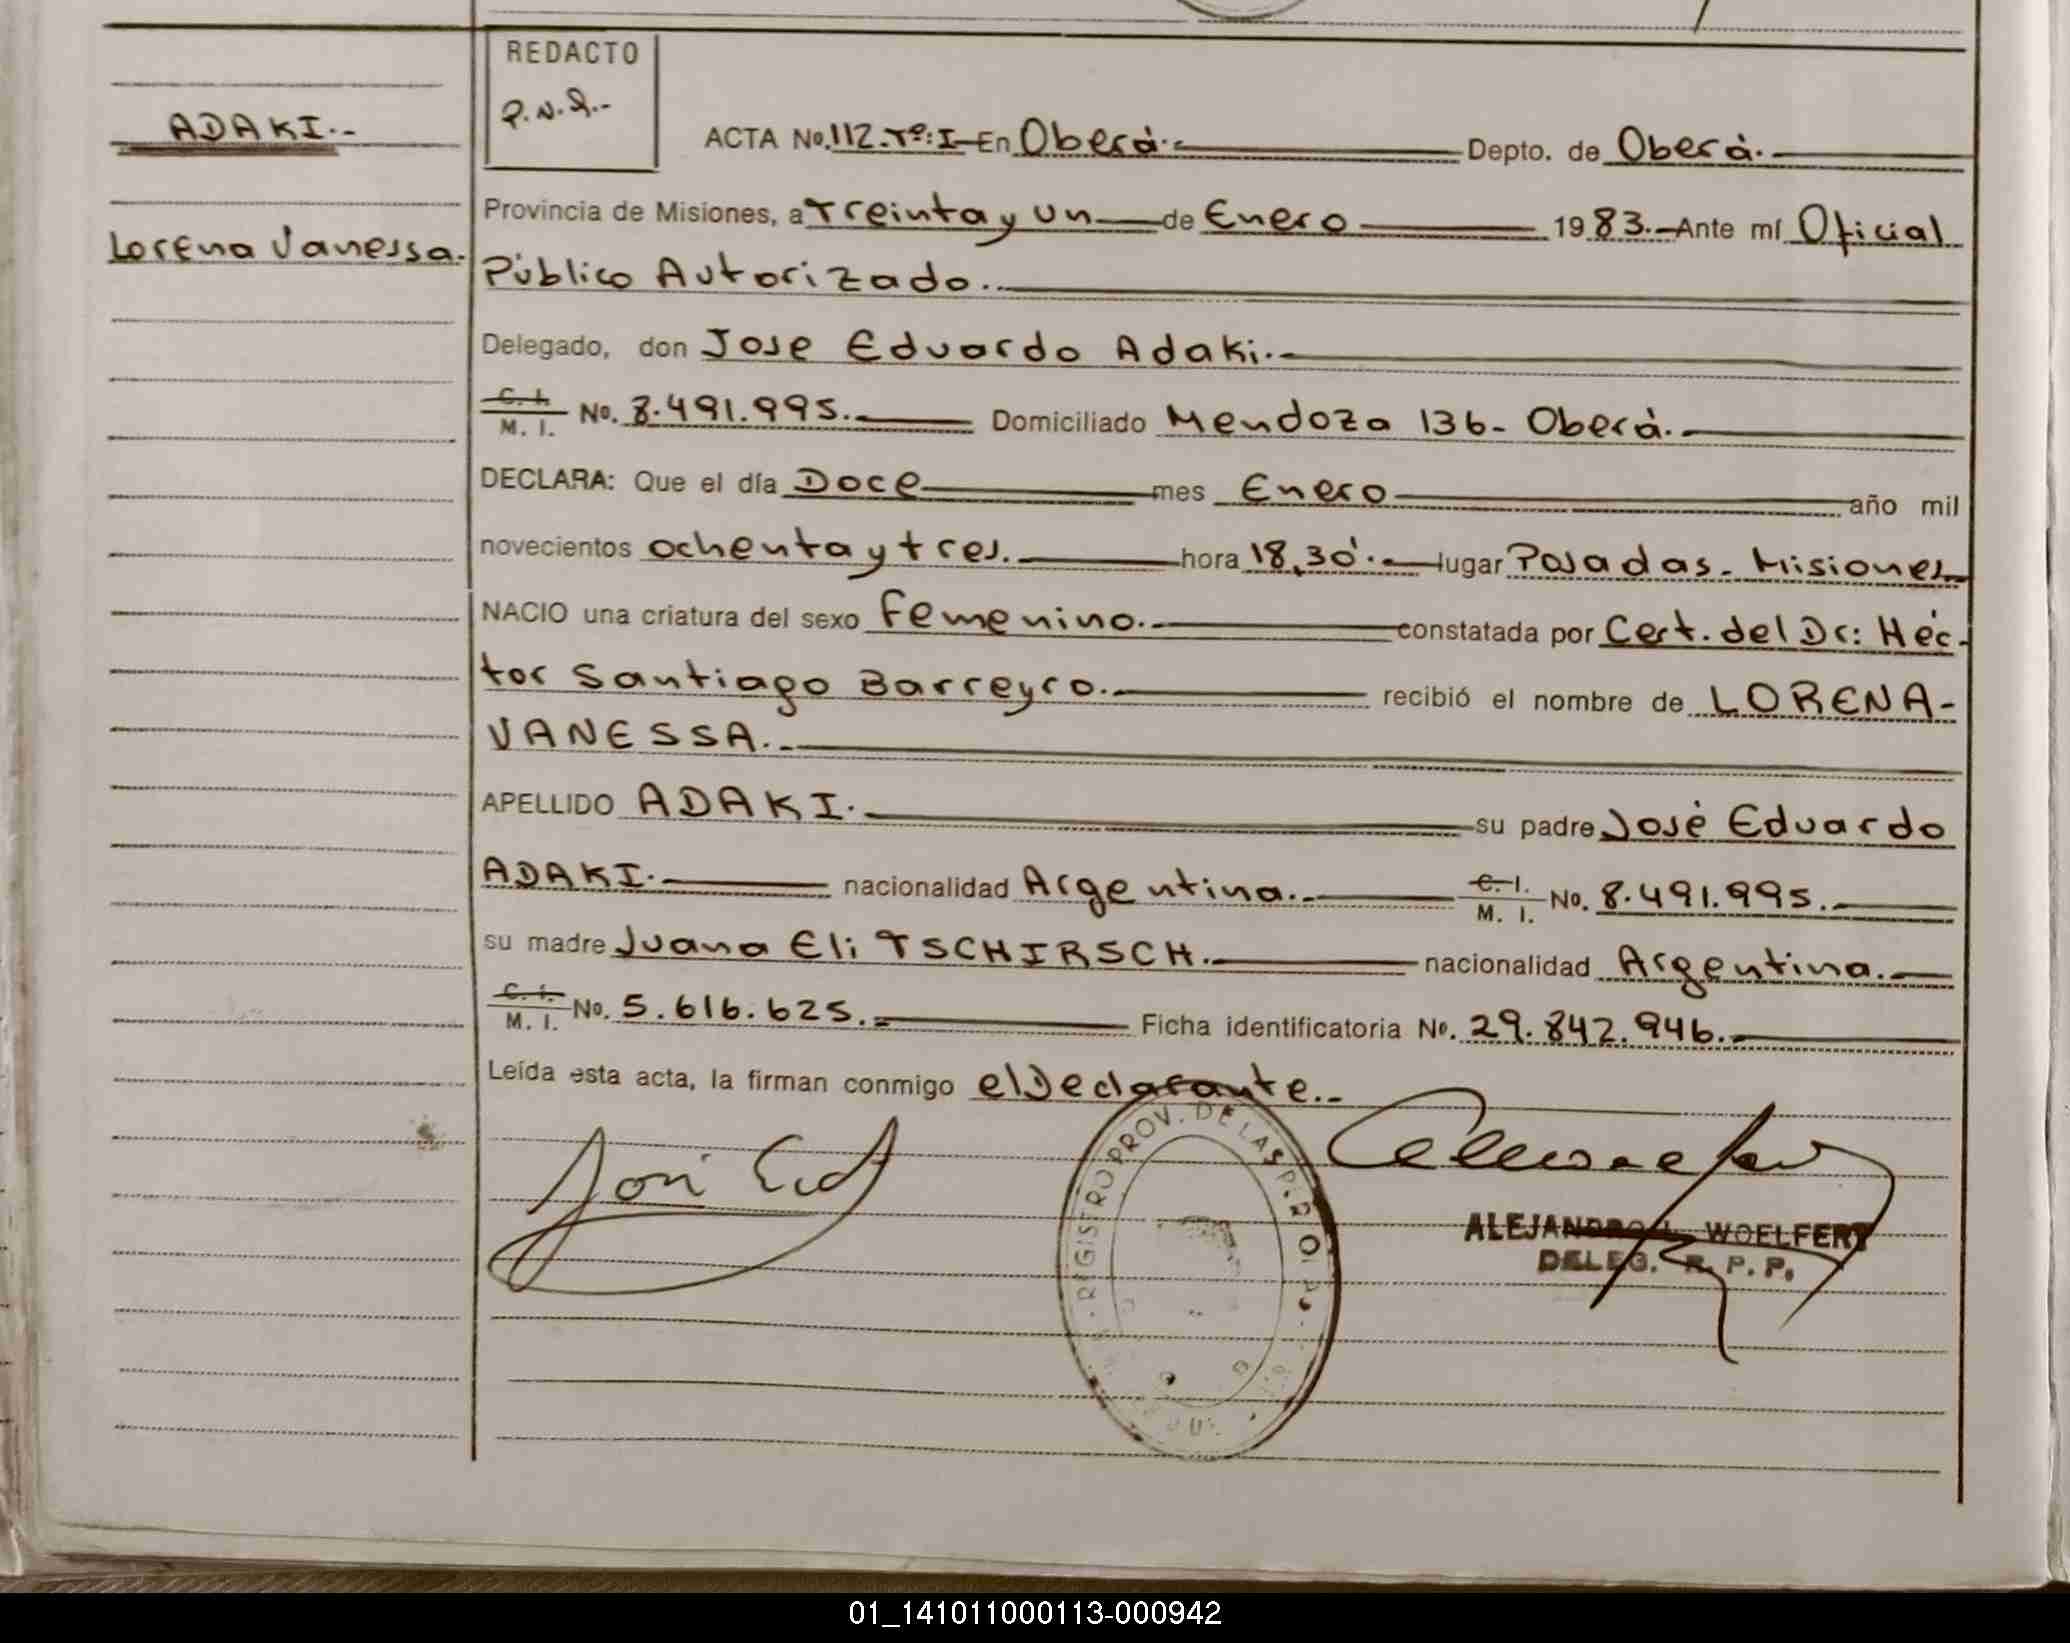 REDACTO
P.N.R.-
ADAKI.-
Lorena Vanessa.
ACTA No. 112.Tº:I-En Oberá.- Depto. de Oberá.-
Provincia de Misiones, a Treinta y un de Enero 1983.- Ante mí Oficial
Público Autorizado.-
Delegado, don Jose Eduardo Adaki.-
C. I. M. I. No. 8.491.995.- Domiciliado Mendoza 136- Oberá.-
DECLARA: Que el día Doce mes Enero año mil
novecientos ochenta y tres. hora 18,30'.- lugar Posadas. Misiones
NACIO una criatura del sexo femenino.- constatada por Cert. del Dr: Héc-
tor Santiago Barreyro.- recibió el nombre de LORENA-
VANESSA.-
APELLIDO ADAKI.- su padre José Eduardo
ADAKI.- nacionalidad Argentina.- C. I. M. I. No. 8.491.995.-
su madre Juana Eli TSCHIRSCH.- nacionalidad Argentina.-
C. I. M. I. No. 5.616.625.- Ficha identificatoria No. 29.842.946.-
Leída esta acta, la firman conmigo el Declarante.-
REGISTRO PROV. DE LAS P.
ALEJANDRO L. WOELFERT
DELEG. R. P. P.
01_141011000113-000942